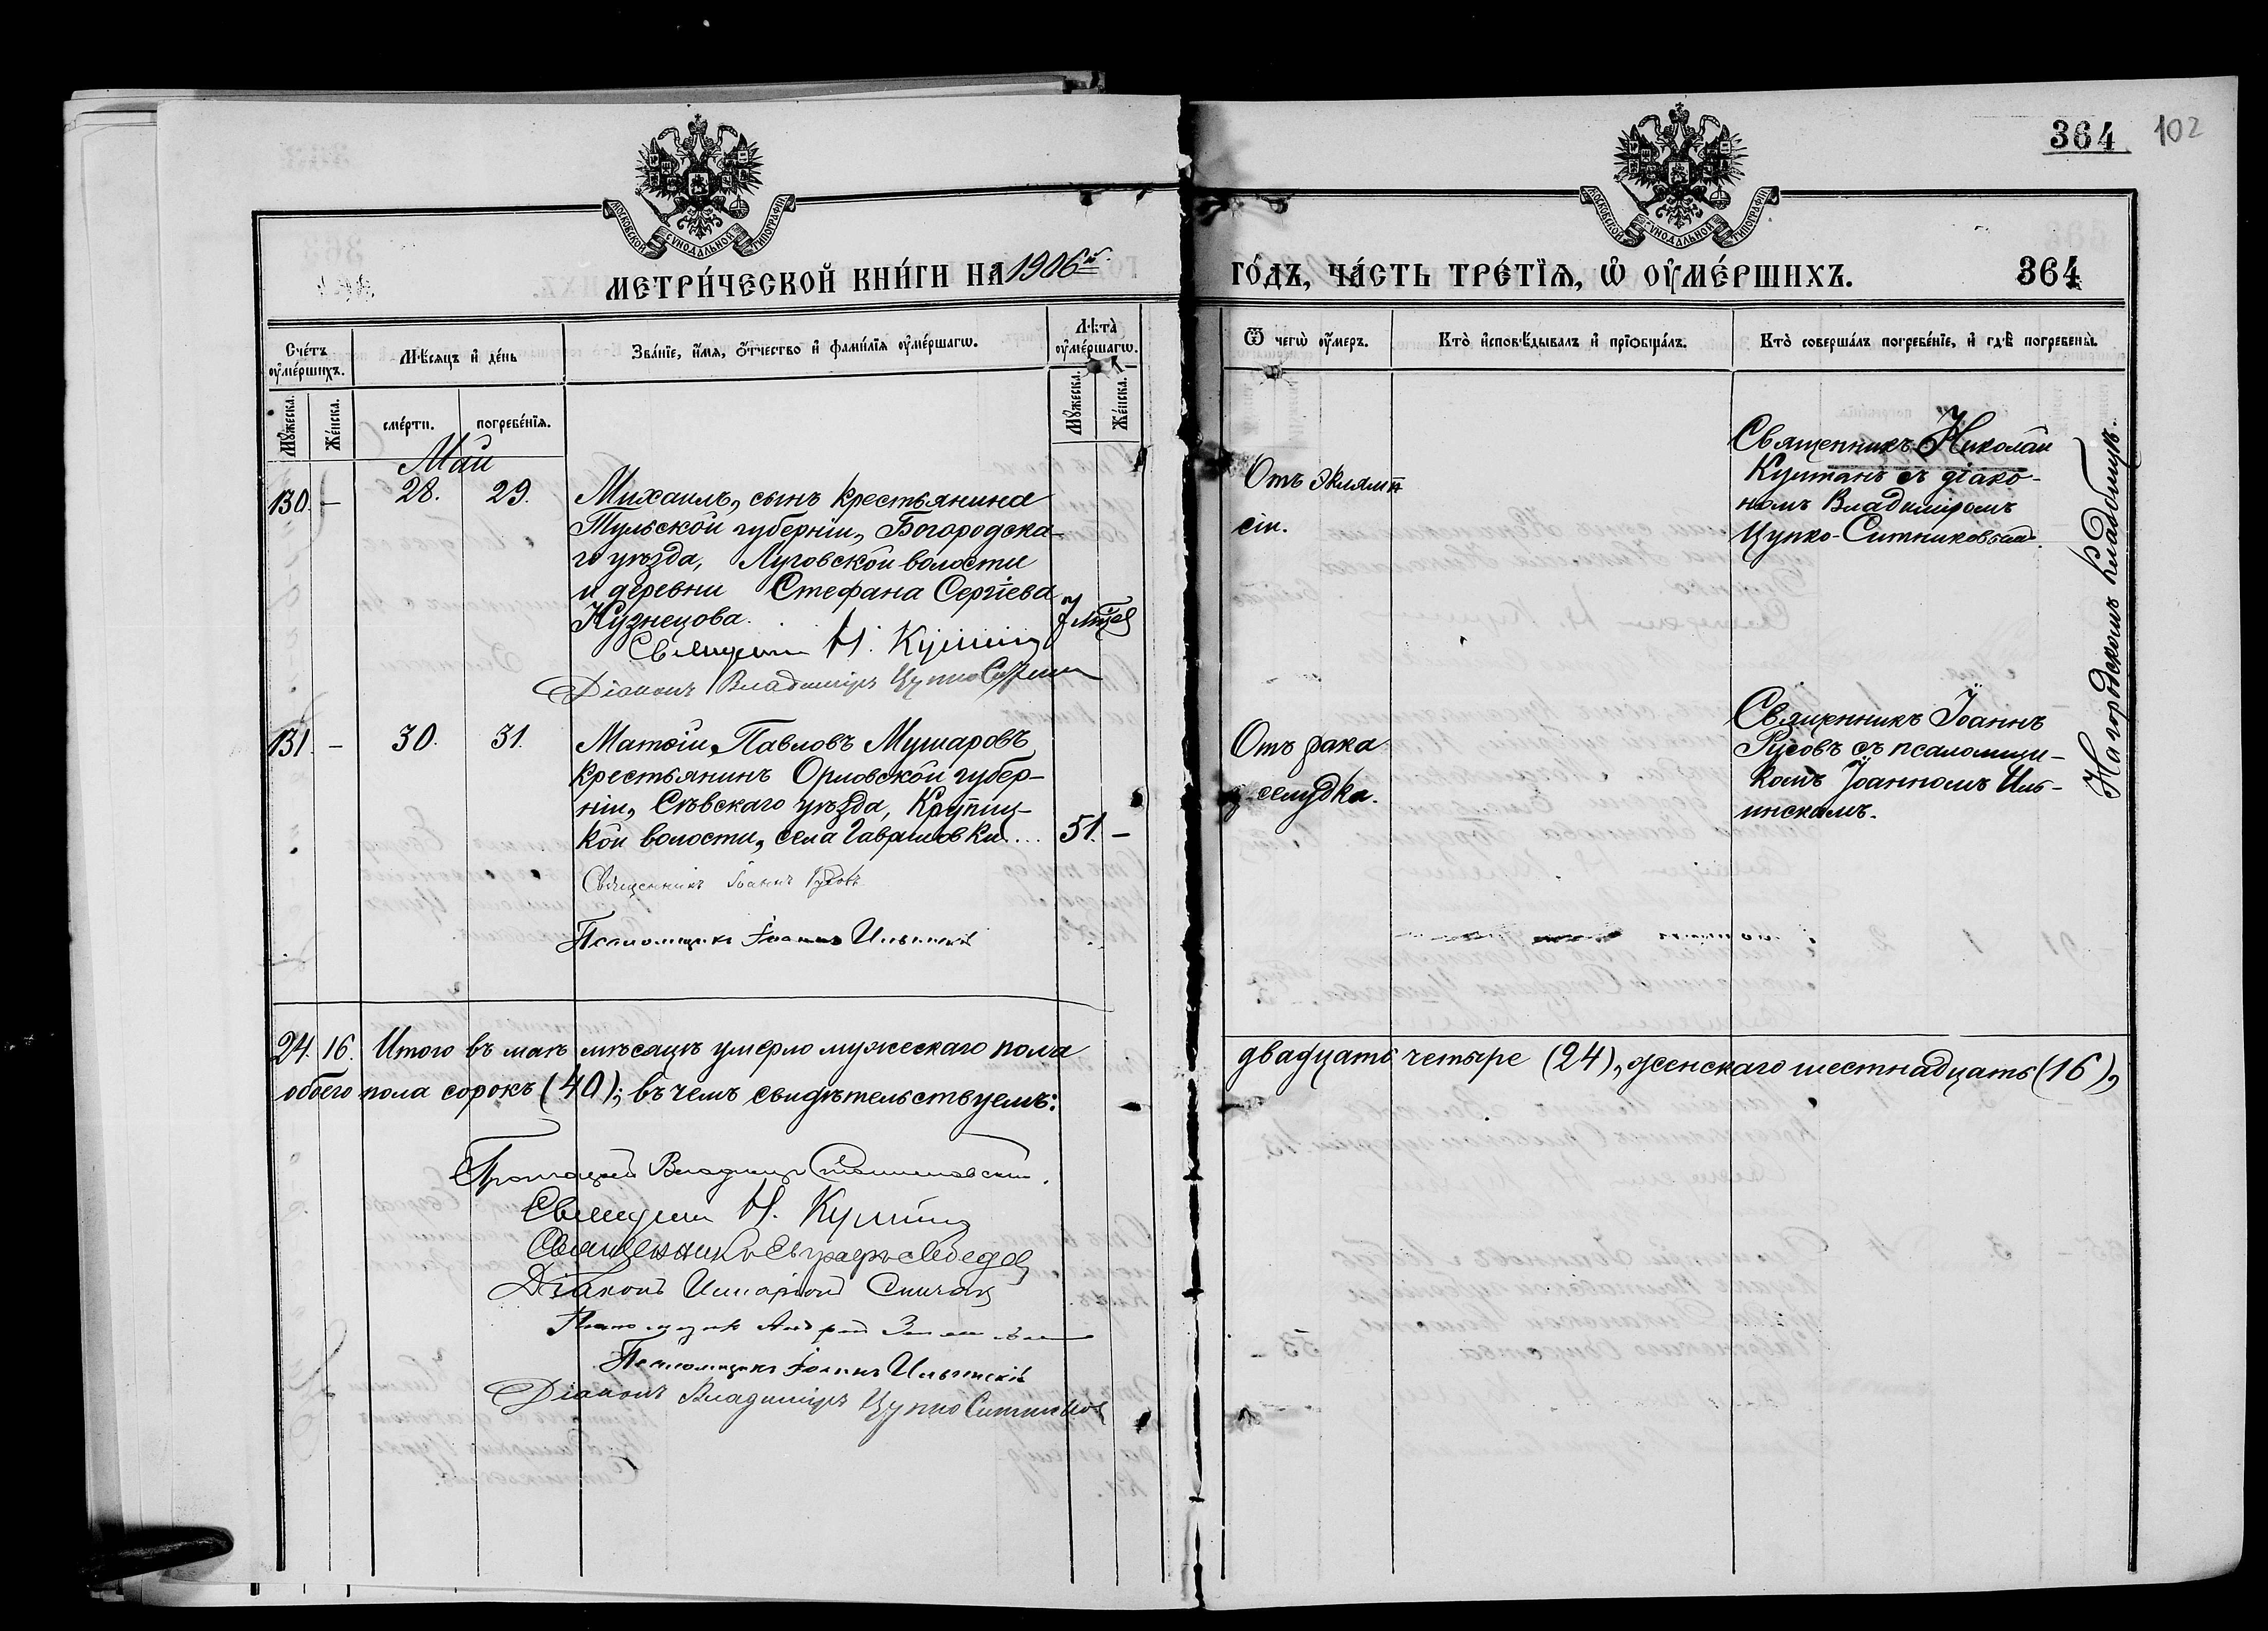 364 102
МОСКОВСКОЙ СУНОДАЛЬНОЙ ТИПОГРАФІИ
МОСКОВСКОЙ СУНОДАЛЬНОЙ ТИПОГРАФІИ
МЕТРИ́ЧЕСКОЙ КНИ́ГИ НА 1906й
ГО́ДЪ, ЧА́СТЬ ТРЕ́ТІѦ, Ѽ ОУ҆МЕ́РШИХЪ. 364
Сче́тъ оу҆ме́ршихъ.
Мѣ́сяцъ и҆ де́нь
Зва́нїе, и҆́мя, ѻ҆́тчество и҆ фами́лїя оу҆ме́ршагѡ.
Лѣ́та оу҆ме́ршагѡ.
Ѿ чегѡ̀ оу҆́меръ.
Кто̀ и҆сповѣ́дывалъ и҆ прїѡбща́лъ.
Кто̀ соверша́лъ погребе́нїе, и҆ гдѣ̀ погребены̀.
Мꙋ́жеска.
Же́нска.
сме́рти.
погребе́нїя.
Мꙋ́жеска.
Же́нска.
Май
130. – 28. 29. Михаилъ, сынъ крестьянина
Тульской губерніи, Богородска-
го уѣзда, Луговской волости
и деревни Стефана Сергіева
Кузнецова.
7 мѣс
Священникъ Н.
Діаконъ Владиміръ Цупко Ситник
Отъ эклямп
сіи.
Священникъ Николай
съ діако-
номъ Владиміромъ
Цупко-Ситниковымъ.
На городскомъ кладбищѣ.
131. – 30. 31. Матѳій Павловъ Мушаровъ,
крестьянинъ Орловской губер-
ніи, Сѣвскаго уѣзда, Крупиц-
кой волости, села Гавриловки... 51. –
Священникъ Іоаннъ Русовъ
Псаломщикъ Іоаннъ Ильинскій
Отъ рака
желудка.
Священникъ Іоаннъ
Русовъ съ псаломщи-
комъ Іоанномъ Иль-
инскимъ.
24. 16. Итого въ маѣ мѣсяцѣ умерло мужескаго пола
двадцать четыре (24), женскаго шестнадцать (16),
обоего пола сорокъ (40); въ чемъ свидѣтельствуемъ:
Протоіерей Владиміръ
Священникъ Н.
Священникъ Евграфъ Лебедев
Діаконъ Иларіонъ
Псаломщикъ Андрей
Псаломщикъ Іоаннъ Ильинскій
Діаконъ Владиміръ Цупко Ситников